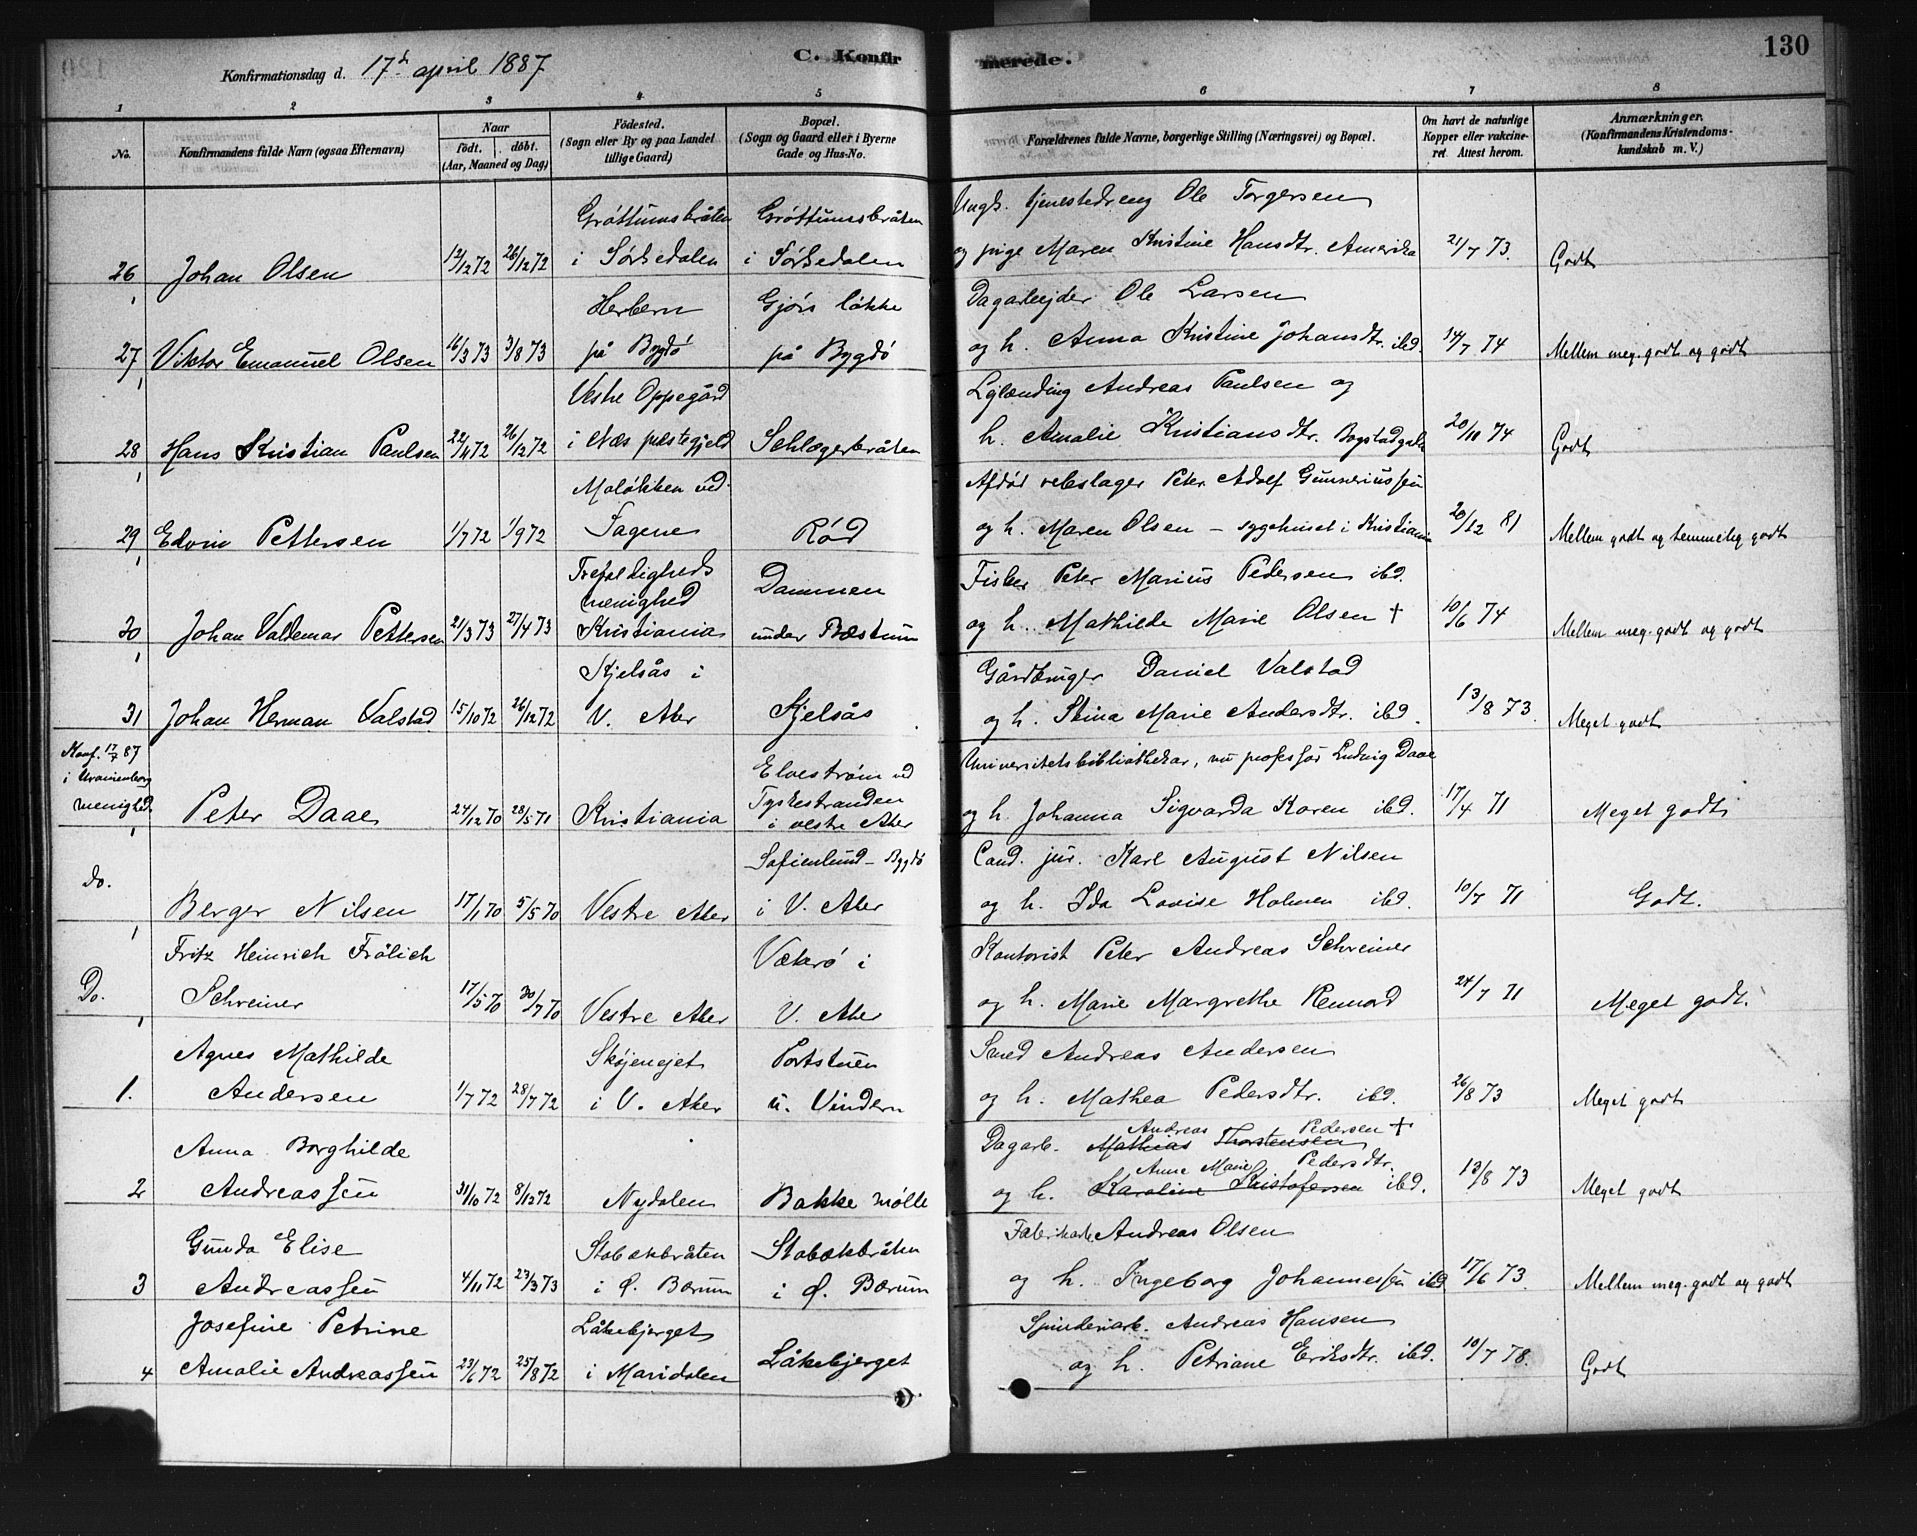 130
Konfirmationsdag d. 17d april 1887
C. Konfirmerede.
1 2 3 4 5 6 7 8
No.
Konfirmandens fulde Navn (ogsaa Efternavn)
Naar
født. døbt.
(Aar, Maaned og Dag)
Fødested.
(Sogn eller By og paa Landet
tillige Gaard)
Bopæl.
(Sogn og Gaard eller i Byerne
Gade og Hus-No.
Forældrenes fulde Navne, borgerlige Stilling (Næringsvei) og Bopæl.
Om havt de naturlige
Kopper eller vakcine-
ret Attest herom.
Anmærkninger.
(Konfirmandens Kristendoms-
kundskab m. V.)
Grøttumsbråten Grøttumsbråten Ungk. tjenestedreng Ole Torgersen
26 Johan Olsen 12/12 72 26/12 72 i Sørkedalen i Sørkedalen og pige Maren Kristine Hansdtr. Amerika 21/7 73. Godt
Herbern Gjørs løkke Dagarbejder Ole Larsen
27 Viktor Emanuel Olsen 16/3 73 3/8 73 på Bygdø på Bygdø og h. Anna Kristine Johansdtr. ibd. 14/7 74 Mellem meg. godt og godt
Vestre Oppegård Lglænding Andreas Paulsen og
28 Hans Kristian Paulsen 22/4 72 26/12 72 i Næs præstegjeld Schlagerbråten h. Amalie Kristiansdtr. 20/10 74 Godt
Moløkken ved Afdød rebslager Peter Adolf Gunneriussen
29 Edvin Pettersen 1/7 72 1/9 72 Sagene Rød og h. Maren Olsen – sygehuset i Kristiania 20/12 81 Mellem godt og temmelig godt
Trefoldigheds Dammen Fisker Peter Marius Pedersen ibd.
menighed
30 Johan Valdemar Pettersen 21/3 73 27/4 73 Kristiania under Bæstum og h. Mathilde Marie Olsen + 10/6 74 Mellem meg. godt og godt
Kjelsås i Gårdbruger Daniel Valstad
31 Johan Herman Valstad 15/10 72 26/12 72 V. Aker Kjelsås og h. Stina Marie Andersdtr. ibd. 13/8 73. Meget godt
Konf. 17/4 87
i Uranienborg
menighed
Elvestrøm ved Universitetsbibliothekar, nu professor Ludvig Daae
Tyskestranden
Peter Daae 24/12 70 28/5 71 Kristiania i vestre Aker og h. Johanna Sigvarda Koren ibd. 17/4 71 Meget godt
Sofienlund – Bygdø Cand. jur. Karl August Nilsen
Do. Berger Nilsen 17/1 70 5/5 70 Vestre Aker i V. Aker og h. Ida Lovise Holmen ibd. 10/7 71 Godt.
Fritz Heinrich Frölich Vækerø i Kontorist Peter Andreas Schreiner
Do. Schreiner 17/5 70 30/7 70 Vestre Aker V. Aker og h. Marie Margrethe 24/7 71 Meget godt.
Agnes Mathilde Skøjenejet Portstuen Smed Andreas Andersen
1. Andersen 1/7 72 28/7 72 i V. Aker u. Vindern og h. Mathea Pedersdtr. ibd. 26/8 73 Meget godt
Andreas Pedersen +
Anna Borghilde Dagarb. Mathias Thorstensen
Anne Marie Pedersdtr.
2 Andreassen 31/10 72 8/12 72 Nydalen Bakke mølle og h. Karoline Kristofersen ibd. 13/8 73 Meget godt
Gunda Elise Stabækbråten Stabækbråten Fabrikarb. Andreas Olsen
3 Andreassen 4/11 72 23/3 73 i Ø. Bærum i Ø. Bærum og h. Ingeborg Johannessen ibd 17/6 73. Mellem meg. godt og godt
Josefine Petrine Låkebjerget Spinderiarb. Andreas Hansen
4 Amalie Andreassen 23/6 72 25/8 72 i Maridalen Låkebjerget og h. Petriane Eriksdtr. ibd. 10/7 78. Godt